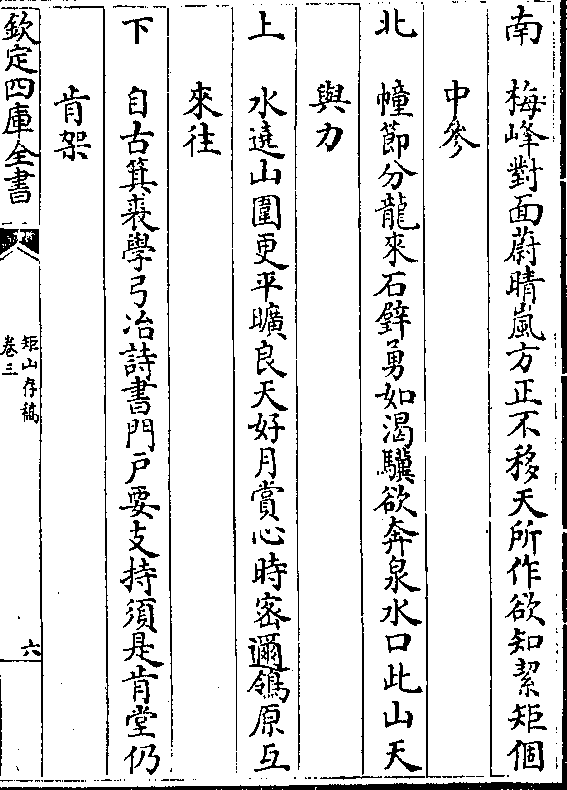 南　梅峰對面蔚晴嵐方正不移天所作欲知絜矩個
中參
北　幢節分龍來石䥗勇如渴驥欲奔泉水口此山天
與力
上　水遶山圍更平曠良天好月賞心時密邇鴒原互
來往
下　自古箕裘學弓冶詩書門戶要支持須是肯堂仍
肯架
欽定四庫全書
矩山存稿
卷三
六